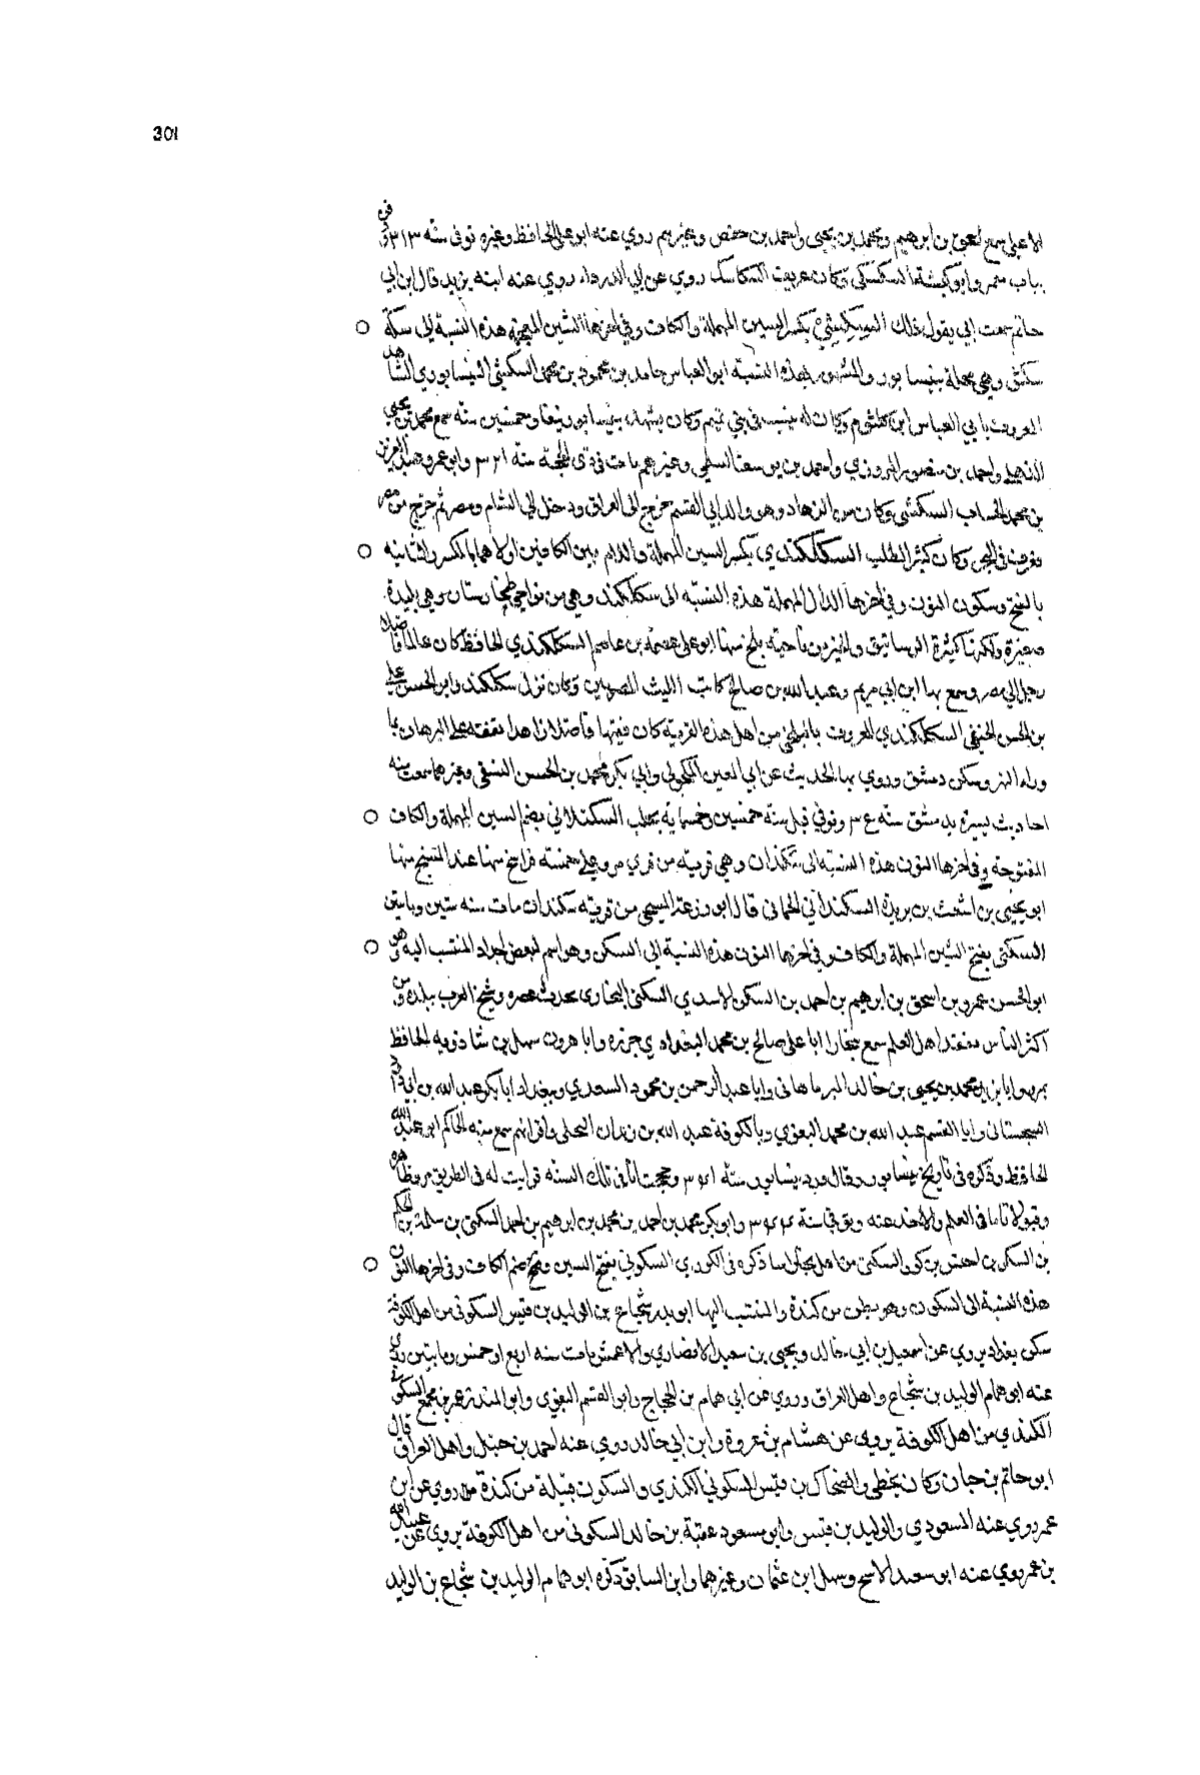 301
الاعلى سمع اسحق بن ابرهيم ومحمد بن يحيى واحمد بن حفص وغيرهم روي عنه ابو علي الحافظ وغيره توفي سنة ٣١٣ وفي
باب عمر وابو كبشة السكسكي وكان عريف السكاسك روي عن ابي الدرداء روي عنه ابنه يزيد قال ابن ابي
حاتم سمعت ابي يقول ذلك السكشي بكسر السين المهملة والكاف وفي اخرها الشين المعجمة هذه النسبة الى سكة
سكش وهي محلة بنيسابور والمشهور بهذه النسبة ابو العباس حامد بن محمود بن محمد السكشي النيسابوري الشاهد
المعروف بابي العباس ابن كلثوم وكان له نسب في بني تميم وكان يشهد بنيسابور نيفا وخمسين سنة سمع محمد بن يحيى
الذهلي واحمد بن منصور المروزي واحمد بن يوسف السلمي وغيرهم مات في ذي الحجة سنة ٣٢١ وابو عمرو عبد العزيز
بن محمد السكشي وكان من الزهاد وهو والد ابي القسم خرج الى العراق ودخل الى الشام ومصر ثم خرج من مصر
فغرق في البحر وكان كثير الطلب السكلكندي بكسر السين المهملة واللام بين الكافين اولاهما بالكسر والثانية
بالفتح وسكون النون وفي اخرها الدال المهملة هذه النسبة الى سكلكند وهي من نواحي طخارستان وهي بليدة
صغيرة ولكنها كثيرة الرساتيق والخير من ناحية بلخ منها ابو علي عصمة بن عاصم السكلكندي الحافظ كان عالما فاضلا
رحل الى مصر وسمع بها ابن ابي مريم وعبد الله بن صالح كاتب الليث المصريين وكان نزل سكلكند وابو الحسن علي
بن الحسن الحنفي السكلكندي المعروف بالبلخي من اهل هذه القرية كان فقيها فاضلا زاهدا تفقه على البرهان بما
وراء النهر وسكن دمشق وروي بها الحديث عن ابي المعين المكحولي وابي بكر محمد بن الحسن النسفي وغيرهما سمعت منه
احاديث يسيرة بدمشق وتوفي قبل سنة خمسين وخمسماية بحلب السكنداني بضم السين المهملة والكاف
المفتوحة وفي اخرها النون هذه النسبة الى سكندان وهي قرية من قري مرو على خمسة فراسخ منها عند منها
ابو يحيى بن اشعث بن بريدة السكنداني قال ابو زرعة السبحي من قرية سكندان مات سنة ستين ومايتين
السكني بفتح السين المهملة والكاف وفي اخرها النون هذه النسبة الى السكن وهو اسم لبعض اجداد المنتسب اليه وهو
ابو الحسن عمرو بن اسحق بن ابرهيم بن احمد بن السكن الاسدي السكني البخاري محدث عصره وشيخ العرب ببلده ومن
اكثر الناس تفقدا لاهل العلم سمع ببخارا ابا علي صالح بن محمد البغدادي جزرة وابا هرون سهل بن شاذويه الحافظ
بمرو ابا يزيد محمد بن يحيى بن خالد وابا عبد الرحمن بن محمود السعدي وببغداد ابا بكر عبد الله بن ابي داود
السجستاني وابا القسم عبد الله بن محمد البغوي وبالكوفة عبد الله بن زيدان البجلي واقرانهم سمع منه الحاكم ابو عبد الله
الحافظ وذكره في تاريخ نيسابور وقال ورد نيسابور سنة وحججت انا في تلك السنة فرايت له في الطريق مروة ظاهرة
وقبولا تاما في العلم والاخذ عنه وتوفي سنة وابو بكر محمد بن احمد بن محمد بن ابرهيم بن احمد السكني بن سلمة بن الحكم
بن السكن بن اخنس بن كوز السكني من اهل ذكره في الكوزي السكوني بفتح السين وضم الكاف وفي اخرها النون
هذه النسبة الى السكون وهو بطن من كندة والمنتسب اليها ابو بدر شجاع بن الوليد بن قيس السكوني من اهل الكوفة
سكن بغداد يروي عن اسمعيل بن ابي خالد ويحيى بن سعيد الانصاري والاعمش مات سنة اربع او خمس ومايتين روي
عنه ابو همام الوليد بن شجاع واهل العراق وروي عن ابي همام بن الحجاج وابو القسم البغوي وابو المنذر عمر بن مجمع السكوني
الكندي من اهل الكوفة يروي عن هشام بن عروة وابن ابي خالد روي عنه احمد بن حنبل واهل العراق قال
ابو حاتم بن حبان وكان يخطي والضحاك بن قيس السكوني الكندي والسكون قبيلة من كندة روي عن ابن
عمر روي عنه المسعودي والوليد بن قيس وابو مسعود عقبة بن خالد السكوني من اهل الكوفة يروي عن عبيد الله
بن عمر روي عنه ابو سعيد الاشج وسهل ابن عثمان وغيرهما وابن السابق ذكره ابو همام الوليد بن شجاع بن الوليد